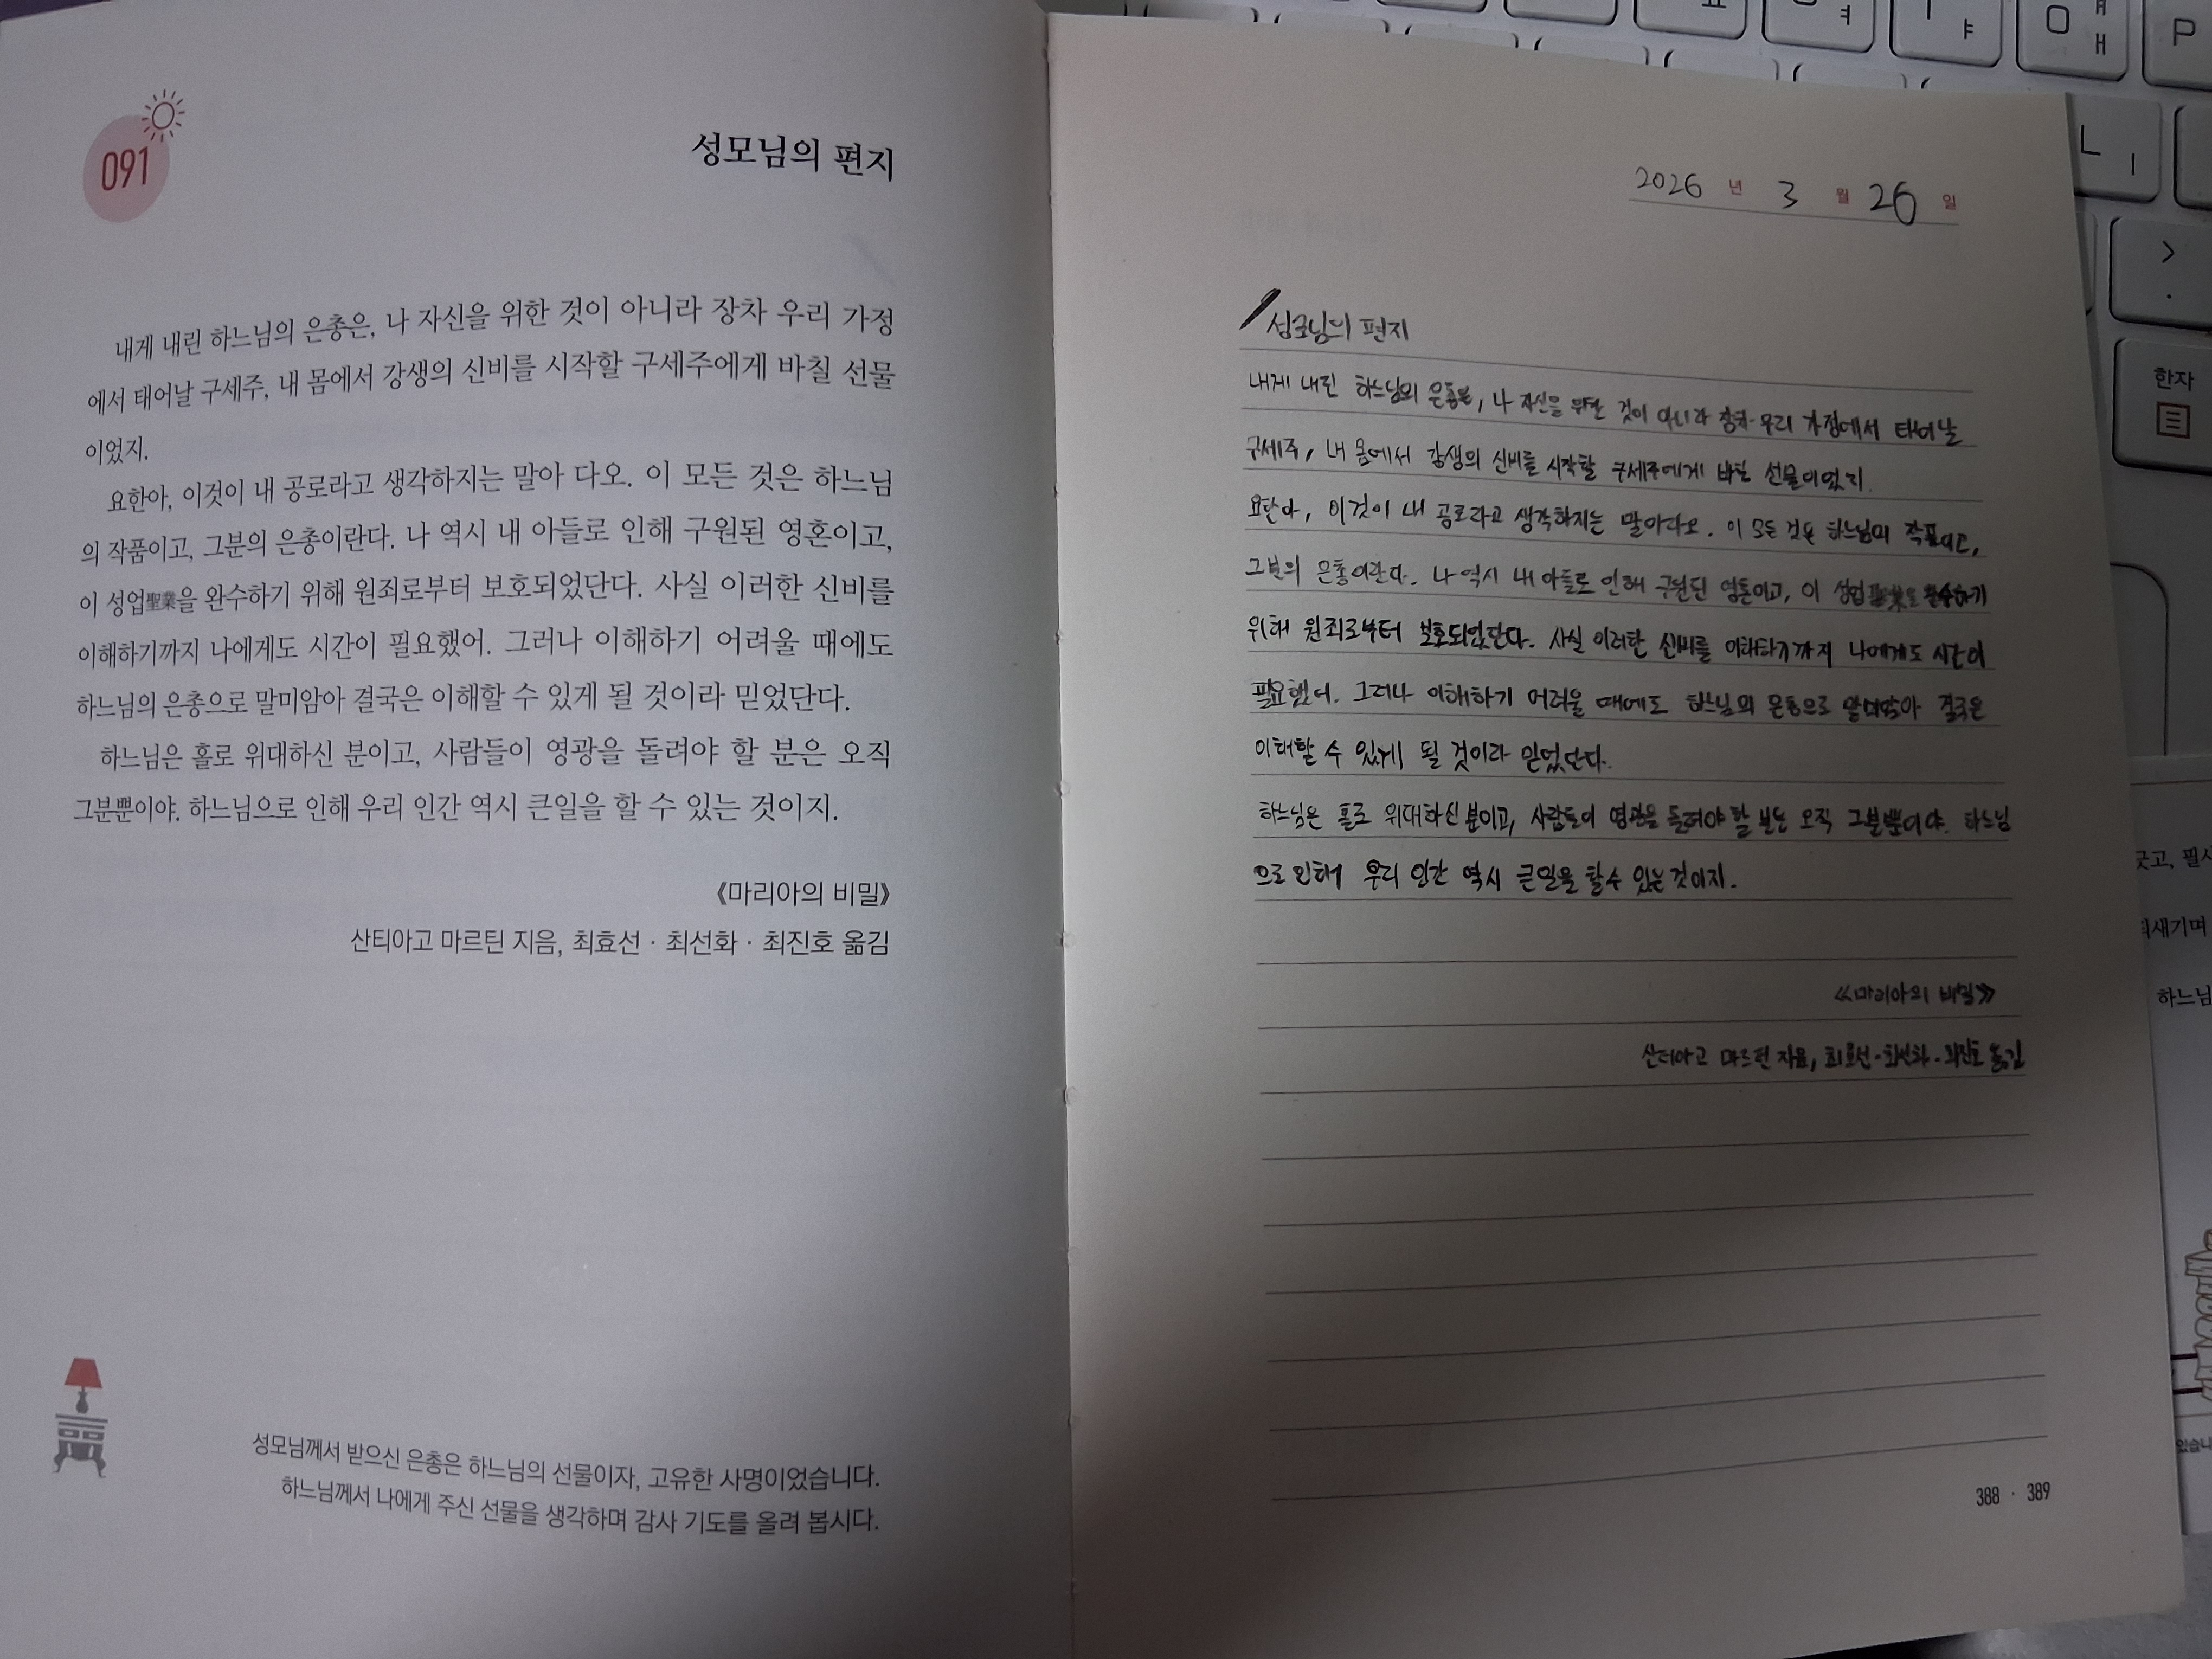 091
성모님의 편지
내게 내린 하느님의 은총은, 나 자신을 위한 것이 아니라 장차 우리 가정
에서 태어날 구세주, 내 몸에서 강생의 신비를 시작할 구세주에게 바칠 선물
이었지.
요한아, 이것이 내 공로라고 생각하지는 말아 다오. 이 모든 것은 하느님
의 작품이고, 그분의 은총이란다. 나 역시 내 아들로 인해 구원된 영혼이고,
이 성업聖業을 완수하기 위해 원죄로부터 보호되었단다. 사실 이러한 신비를
이해하기까지 나에게도 시간이 필요했어. 그러나 이해하기 어려울 때에도
하느님의 은총으로 말미암아 결국은 이해할 수 있게 될 것이라 믿었단다.
하느님은 홀로 위대하신 분이고, 사람들이 영광을 돌려야 할 분은 오직
그분뿐이야. 하느님으로 인해 우리 인간 역시 큰일을 할 수 있는 것이지.
《마리아의 비밀》
산티아고 마르틴 지음, 최효선 · 최선화 · 최진호 옮김
성모님께서 받으신 은총은 하느님의 선물이자, 고유한 사명이었습니다.
하느님께서 나에게 주신 선물을 생각하며 감사 기도를 올려 봅시다.
2026 년 3 월 26 일
성모님의 편지
내게 내린 하느님의 은총은, 나 자신을 위한 것이 아니라 장차 우리 가정에서 태어날
구세주, 내 몸에서 강생의 신비를 시작할 구세주에게 바칠 선물이었지.
요한아, 이것이 내 공로라고 생각하지는 말아다오. 이 모든 것은 하느님의 작품이고,
그분의 은총이란다. 나 역시 내 아들로 인해 구원된 영혼이고, 이 성업聖業을 완수하기
위해 원죄로부터 보호되었단다. 사실 이러한 신비를 이해하기까지 나에게도 시간이
필요했어. 그러나 이해하기 어려울 때에도 하느님의 은총으로 말미암아 결국은
이해할 수 있게 될 것이라 믿었단다.
하느님은 홀로 위대하신 분이고, 사람들이 영광을 돌려야 할 분은 오직 그분뿐이야. 하느님
으로 인해 우리 인간 역시 큰일을 할 수 있는 것이지.
《마리아의 비밀》
산티아고 마르틴 지음, 최효선·최선화·최진호 옮김
388 · 389
ㅕ
ㅑ
ㅇ
ㅐ
ㅒ
P
ㄴ
ㅣ
>
.
한자
긋고, 필사
되새기며
하느님